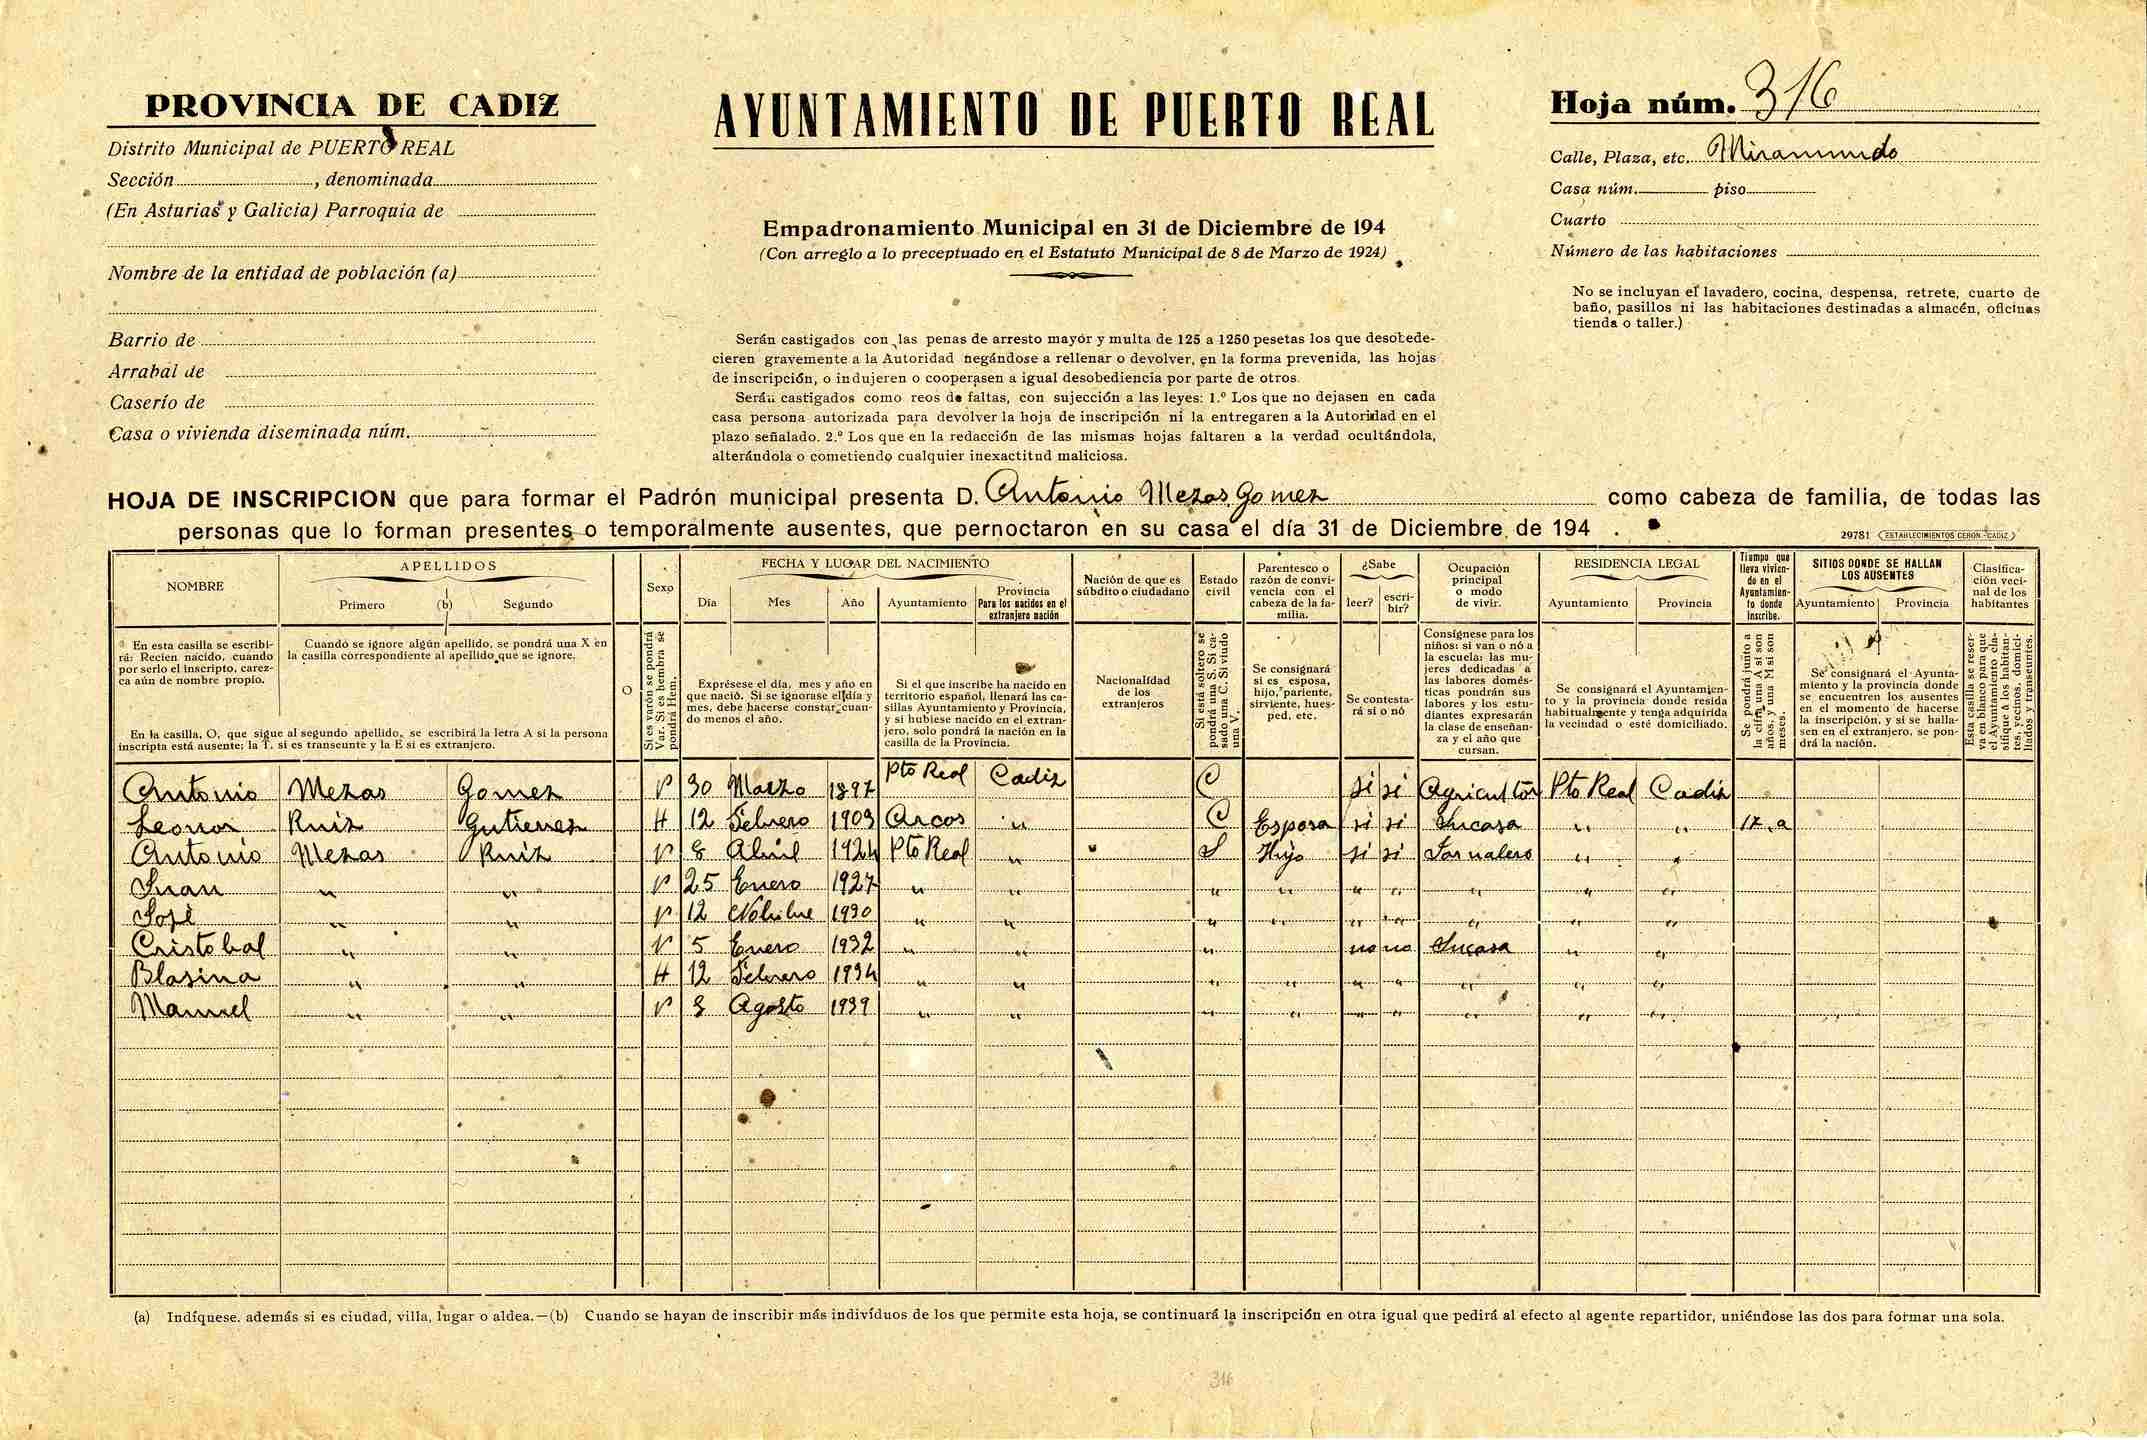 PROVINCIA DE CADIZ
Distrito Municipal de PUERTO REAL
Sección , denominada
(En Asturias y Galicia) Parroquia de
Nombre de la entidad de población (a)
Barrio de
Arrabal de
Caserío de
Casa o vivienda diseminada núm.
AYUNTAMIENTO DE PUERTO REAL
Empadronamiento Municipal en 31 de Diciembre de 194
(Con arreglo a lo preceptuado en el Estatuto Municipal de 8 de Marzo de 1924)
Serán castigados con las penas de arresto mayor y multa de 125 a 1250 pesetas los que desobede-
cieren gravemente a la Autoridad negándose a rellenar o devolver, en la forma prevenida, las hojas
de inscripción, o indujeren o cooperasen a igual desobediencia por parte de otros.
Serán castigados como reos de faltas, con sujección a las leyes: 1.º Los que no dejasen en cada
casa persona autorizada para devolver la hoja de inscripción ni la entregaren a la Autoridad en el
plazo señalado. 2.º Los que en la redacción de las mismas hojas faltaren a la verdad ocultándola,
alterándola o cometiendo cualquier inexactitud maliciosa.
Hoja núm. 316
Calle, Plaza, etc. Miramundo
Casa núm. piso
Cuarto
Número de las habitaciones
No se incluyan el lavadero, cocina, despensa, retrete, cuarto de
baño, pasillos ni las habitaciones destinadas a almacén, oficinas
tienda o taller.)
HOJA DE INSCRIPCION que para formar el Padrón municipal presenta D. Antonio Mezas Gomez como cabeza de familia, de todas las
personas que lo forman presentes o temporalmente ausentes, que pernoctaron en su casa el día 31 de Diciembre de 194 .
29781 ESTABLECIMIENTOS CERON.-CADIZ
NOMBRE
APELLIDOS
Primero (b) Segundo
Sexo
FECHA Y LUGAR DEL NACIMIENTO
Día Mes Año Ayuntamiento
Provincia
Para los nacidos en el
extranjero nación
Nación de que es
súbdito o ciudadano
Estado
civil
Parentesco o
razón de convi-
vencia con el
cabeza de la fa-
milia.
¿Sabe
leer? escri-
bir?
Ocupación
principal
o modo
de vivir.
RESIDENCIA LEGAL
Ayuntamiento Provincia
Tiempo que
lleva vivien-
do en el
Ayuntamien-
to donde
inscribe.
SITIOS DONDE SE HALLAN
LOS AUSENTES
Ayuntamiento Provincia
Clasifica-
ción veci-
nal de los
habitantes
En esta casilla se escribi-
rá: Recien nacido, cuando
por serlo el inscripto, carez-
ca aún de nombre propio.
Cuando se ignore algún apellido, se pondrá una X en
la casilla correspondiente al apellido que se ignore.
En la casilla, O, que sigue al segundo apellido, se escribirá la letra A si la persona
inscripta está ausente; la T. si es transeunte y la E si es extranjero.
O
Si es varón se pondrá
Var. Si es hembra se
pondrá Hem.
Exprésese el día, mes y año en
que nació. Si se ignorase el día y
mes, debe hacerse constar cuan-
do menos el año.
Si el que inscribe ha nacido en
territorio español, llenará las ca-
sillas Ayuntamiento y Provincia,
y si hubiese nacido en el extran-
jero, solo pondrá la nación en la
casilla de la Provincia.
Nacionalidad
de los
extranjeros
Si está soltero se
pondrá una S. Si ca-
sado una C. Si viudo
una V.
Se consignará
si es esposa,
hijo, pariente,
sirviente, hues-
ped, etc.
Se contesta-
rá si o nó
Consígnese para los
niños: si van o nó a
la escuela: las mu-
jeres dedicadas a
las labores domés-
ticas pondrán sus
labores y los estu-
diantes expresarán
la clase de enseñan-
za y el año que
cursan.
Se consignará el Ayuntamien-
to y la provincia donde resida
habitualmente y tenga adquirida
la vecindad o esté domiciliado.
Se pondrá junto a
la cifra una A si son
años, y una M si son
meses.
Se consignará el Ayunta-
miento y la provincia donde
se encuentren los ausentes
en el momento de hacerse
la inscripción, y si se halla-
sen en el extranjero, se pon-
drá la nación.
Esta casilla se reser-
va en blanco para que
el Ayuntamiento cla-
sifique á los habitan-
tes, vecinos, domici-
liados y transeuntes.
Antonio Mezas Gomez V 30 Marzo 1897 Pto Real Cadiz C si si Agricultor Pto Real Cadiz
Leonor Ruiz Gutierrez H 12 Febrero 1903 Arcos " C Esposa si si Sucasa " " 17 a
Antonio Mezas Ruiz V 8 Abril 1924 Pto Real " S Hijo si si Jornalero " "
Juan " " V 25 Enero 1927 " " " " " " " " "
José " " V 12 Nobibre 1930 " " " " " " " " "
Cristobal " " V 5 Enero 1932 " " " no no Sucasa " "
Blasina " " H 12 Febrero 1934 " " " " " " " " "
Manuel " " V 8 Agosto 1939 " " " " " " " " "
(a) Indíquese. además si es ciudad, villa, lugar o aldea.—(b) Cuando se hayan de inscribir más indivíduos de los que permite esta hoja, se continuará la inscripción en otra igual que pedirá al efecto al agente repartidor, uniéndose las dos para formar una sola.
316